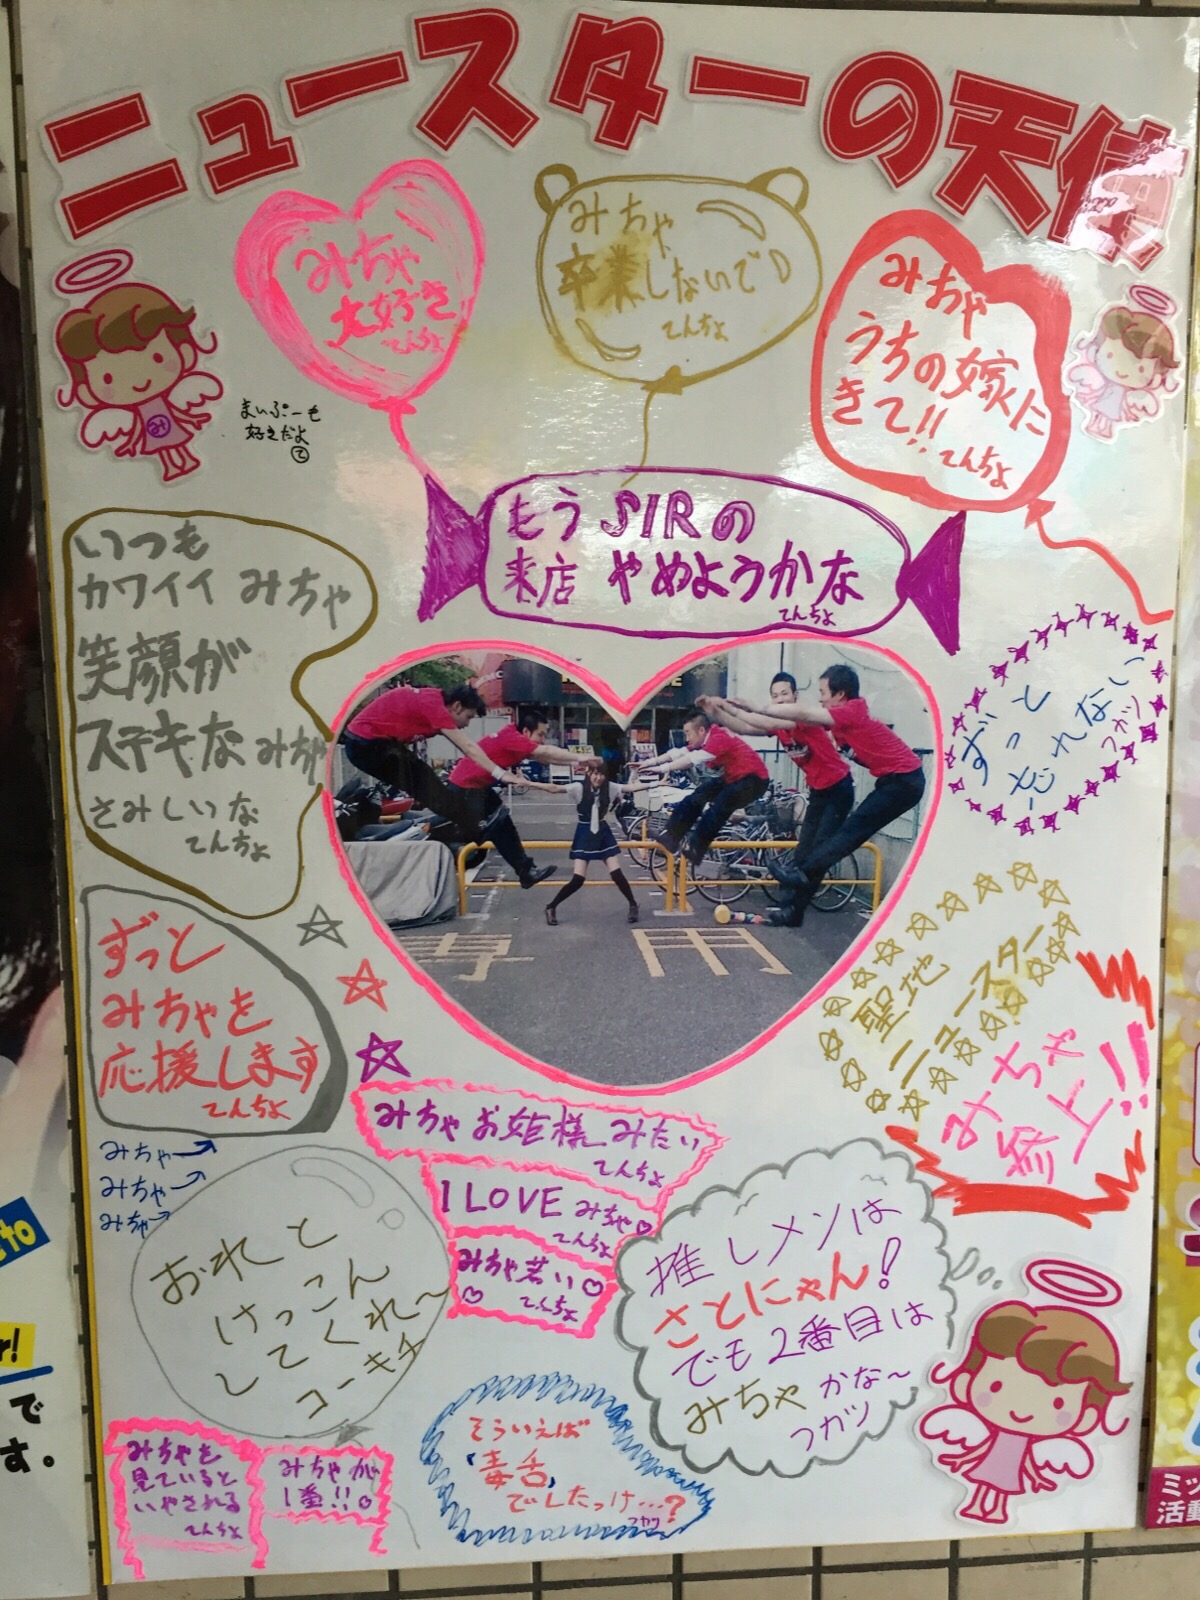 ニュースターの天使
みちゃ
大好き
てんちょ
みちゃ
卒業しないで
てんちょ
みちゃ
うちの嫁に
きて!!
てんちょ
まいぷーも
好きだよ
て
み
もうSIRの
来店 やめようかな
てんちょ
いつも
カワイイ みちゃ
笑顔が
ステキな みちゃ
さみしいな
てんちょ
ずっと
フカツ
専用
ずっと
みちゃを
応援します
てんちょ
聖地
ニュースター
みちゃ
参上!!
みちゃお姫様みたい
てんちょ
I LOVE みちゃ♡
てんちょ
みちゃ若い♡
♡ てんちょ
みちゃ→
みちゃ→
みちゃ→
おれと
けっこん
してくれ〜
コーキチ
推しメンは
さとにゃん!
でも2番目は
みちゃ かな〜
フカツ
みちゃを
見ていると
いやされる
てんちょ
みちゃが
1番!!♡
そういえば
「毒舌」
でしたっけ…?
フカツ
to
r!
で
す。
ミッ
活動